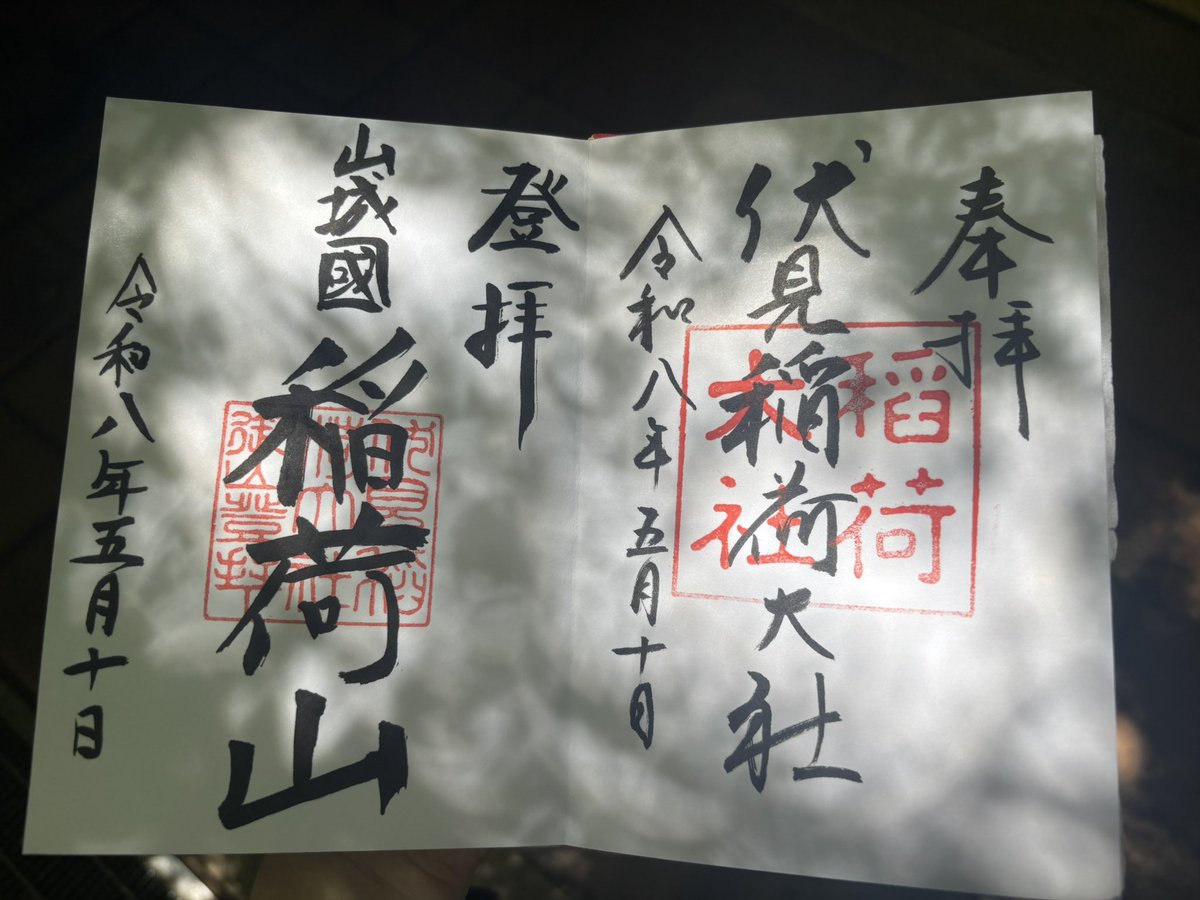 奉拝
伏見稲荷大社
稲荷
大社
令和八年五月十日
登拝
山城國
稲荷山
令和八年五月十日